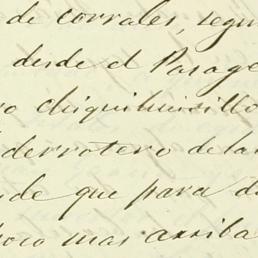 de corrales, segu
desde el Parage
chiquihuisillo
derrotero de la
de que para d
poco mas arriba